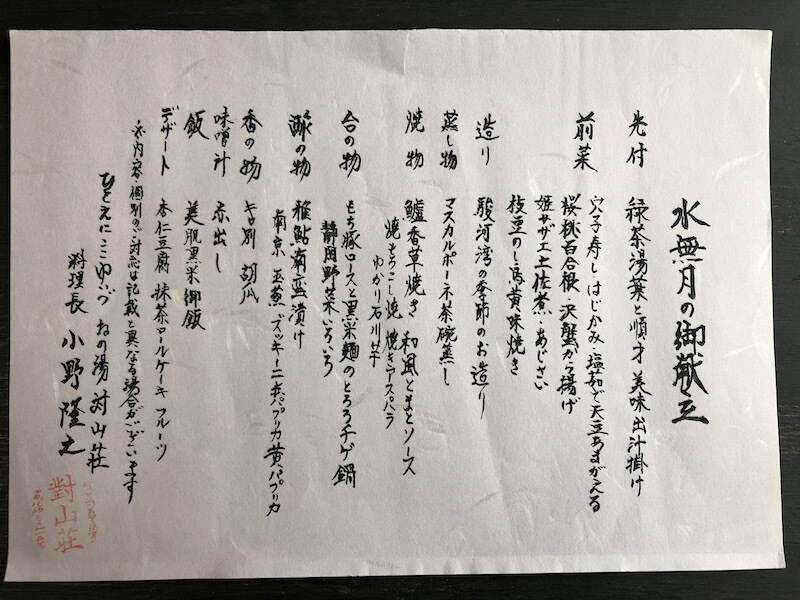 水無月の御献立
先付 緑茶湯葉と順才 美味出汁掛け
前菜 穴子寿し・はじかみ 塩茹で天豆あまがえる
桜桃百合根・沢蟹から揚げ
姫サザエ土佐煮・あじさい
枝豆のし鳥黄味焼き
造り 駿河湾の季節のお造り
蒸し物 マスカルポーネ茶碗蒸し
焼物 鱸香草焼き 和風とまとソース
焼もろこし焼 焼きアスパラ
ゆかり石川芋
台の物 もち豚ロースと黒米麺のとろろチゲ鍋
静岡野菜いろいろ
酢の物 稚鮎南蛮漬け
南京 玉葱 ズッキーニ 赤パプリカ 黄パプリカ
香の物 キャ別 胡瓜
味噌汁 赤出し
飯 美肌黒米御飯
デザート 杏仁豆腐 抹茶ロールケーキ フルーツ
※内容・個別のご対応は記載と異なる場合がございます
ひとえにここゆづ ねの湯 対山荘
料理長 小野隆之
對山荘